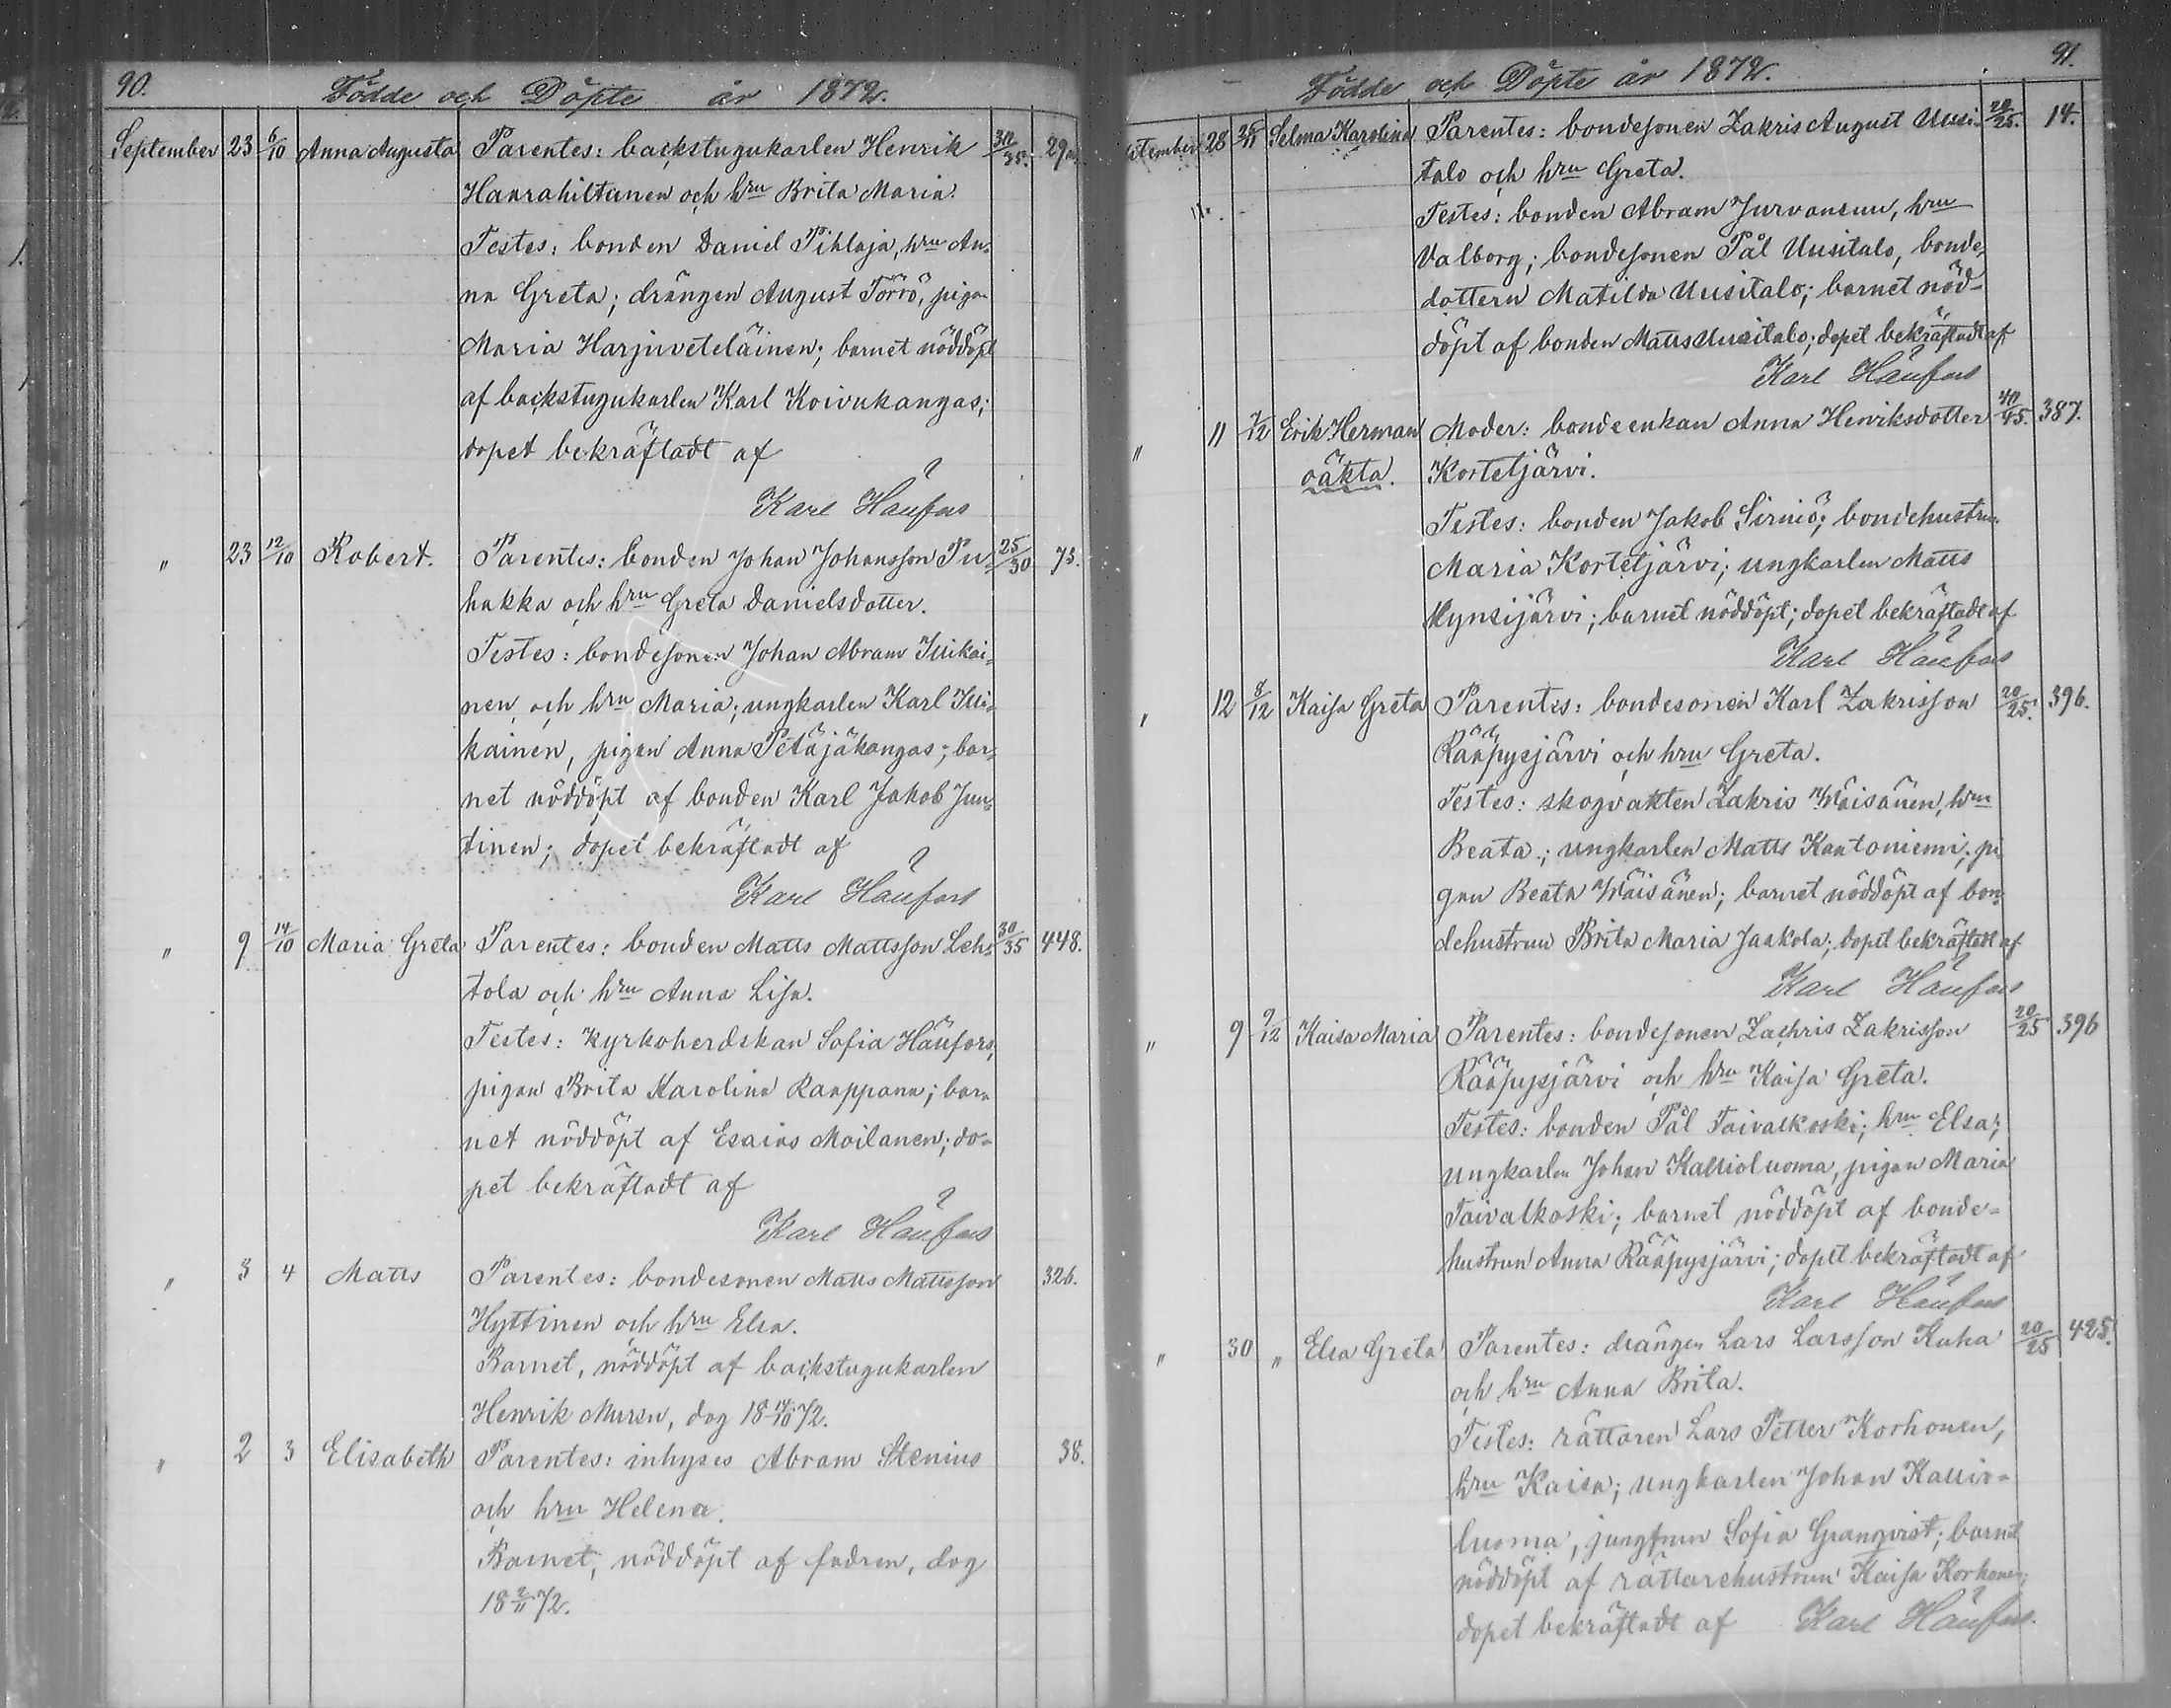 90.
Födde och Döpte år 1872.
September 23 6/10 Anna Augusta Parentes: backstugukarlen Henrik 30/35. 29
Haarahiltunen och hru Brita Maria.
Testes: bonden Daniel Pihlaja, hru An-
na Greta; drängen August Törrö, pigan
Maria Harjuveteläinen; barnet nöddöpt
af backstugukarlen Karl Koivukangas;
dopet bekräftadt af
Karl Hänfors
" 23 12/10 Robert. Parentes: bonden Johan Johansson Pu- 25/30 73.
hakka och hru Greta Danielsdotter.
Testes: bondesonen Johan Abram Illikai-
nen och hru Maria; ungkarlen Karl Illi-
kainen, pigan Anna Petäjäkangas; bar-
net nöddöpt af bonden Karl Jakob Jun-
tinen; dopet bekräftadt af
Karl Hänfors
" 9 14/10 Maria Greta Parentes: bonden Matts Mattsson Leh- 30/35 448.
tola och hru Anna Lisa.
Testes: kyrkoherdskan Sofia Hänfors,
pigan Brita Karolina Raappana; bar-
net nöddöpt af Esaias Moilanen; do-
pet bekräftadt af
Karl Hänfors
" 3 4 Matts Parentes: bondesonen Matts Mattsson 326.
Hyttinen och hru Elsa.
Barnet, nöddöpt af backstugukarlen
Henrik Muren, dog 18 14/10 72.
" 2 3 Elisabeth Parentes: inhyses Abram Stenius 38.
och hru Helena.
Barnet, nöddöpt af fadren, dog
18 2/11 72.
91.
Födde och Döpte år 1872.
tember 28 25/11 Selma Karolina Parentes: bondesonen Zakris August Uusi- 20/25. 14.
talo och hru Greta.
Testes: bonden Abram Jurvansuu, hru
Valborg; bondesonen Pål Uusitalo, bonde-
dottern Matilda Uusitalo; barnet nöd-
döpt af bonden Matts Uusitalo; dopet bekräftadt af
Karl Hänfors
" 11 7/12 Erik Herman Moder: bondeenkan Anna Henriksdotter 40/45. 387.
oäkta. Kortetjärvi.
Testes: bonden Jakob Sirniö; bondehustrun
Maria Kortetjärvi; ungkarlen Matts
Kynsijärvi; barnet nöddöpt; dopet bekräftadt af
Karl Hänfors
" 12 8/12 Kaisa Greta Parentes: bondesonen Karl Zakrisson 20/25. 396.
Rääpysjärvi och hru Greta.
Testes: skogvakten Zakris Wäisänen, hru
Beata; ungkarlen Matts Kantoniemi, pi-
gan Beata Wäisänen; barnet nöddöpt af bon-
dehustrun Brita Maria Jaakola; dopet bekräftadt af
Karl Hänfors
" 9 9/12 Kaisa Maria Parentes: bondesonen Zachris Zakrisson 20/25 396
Rääpysjärvi och hru Kaisa Greta.
Testes: bonden Pål Taivalkoski; hru Elsa;
ungkarlen Johan Kallioluoma, pigan Maria
Taivalkoski; barnet nöddöpt af bonde-
hustrun Anna Rääpysjärvi; dopet bekräftadt af
Karl Hänfors
" 30 " Elsa Greta Parentes: drängen Lars Larsson Kuha 20/25 425.
och hru Anna Brita.
Testes: rättaren Lars Petter Korhonen,
hru Kaisa; ungkarlen Johan Kallio-
luoma, jungfrun Sofia Granqvist; barnet
nöddöpt af rättarehustrun Kaisa Korhonen;
dopet bekräftadt af Karl Hänfors.